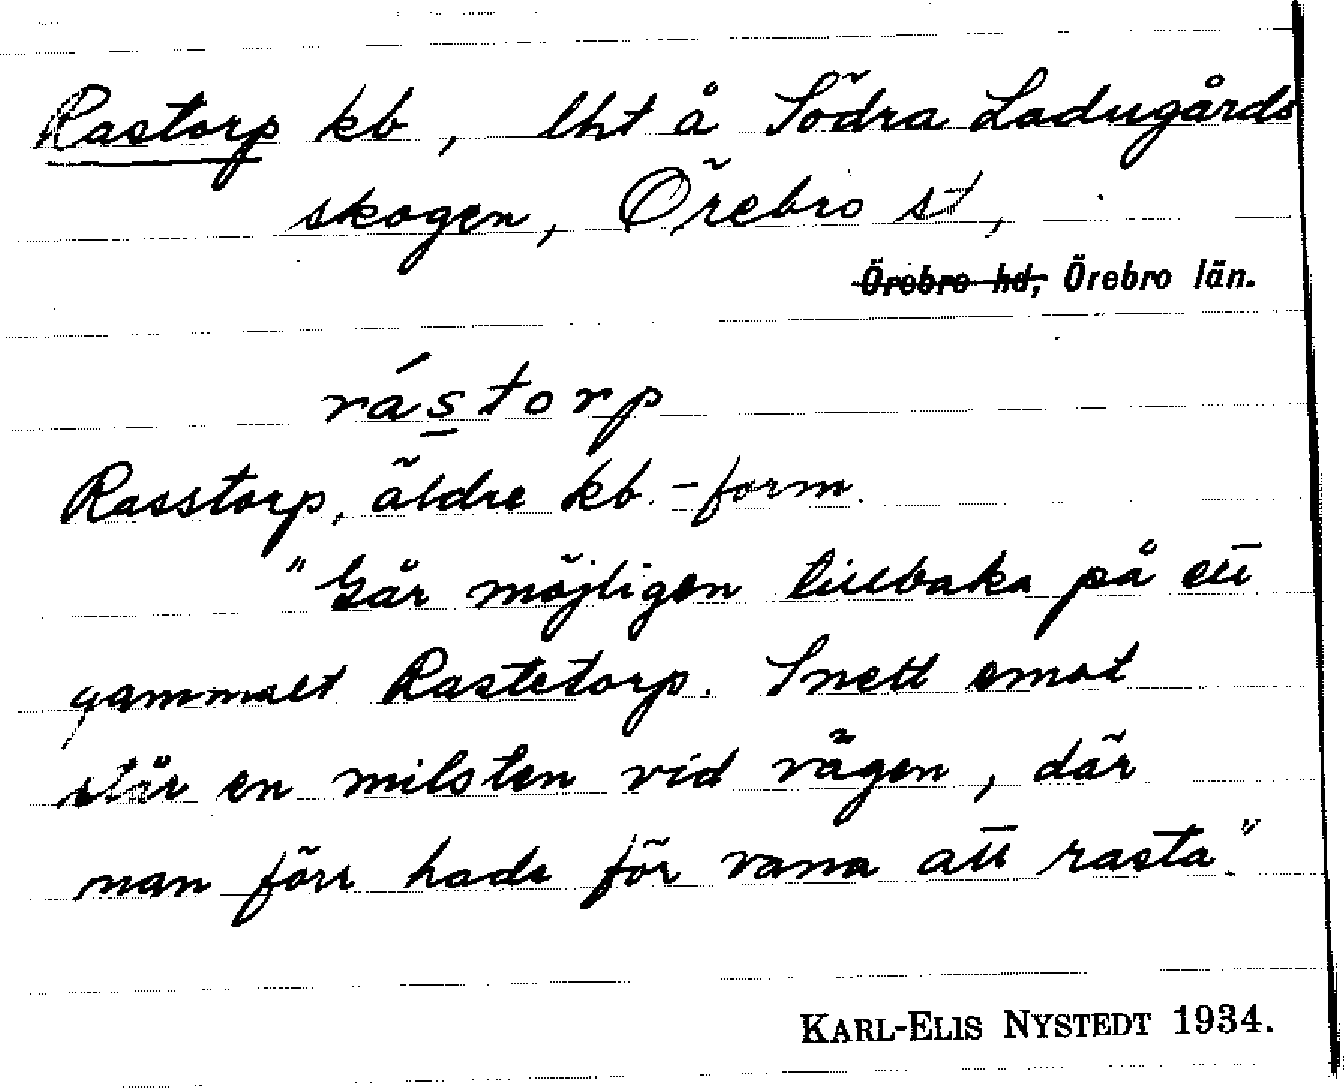 Rastorp kb, lht å Södra Ladugårds
skogen, Örebro st,
Örebro hd, Örebro län.
rástorp
Rasstorp, äldre kb.-form.
"Går möjligen tillbaka på ett
gammalt Rastetorp. Snett emot
står en milsten vid vägen, där
man förr hade för vana att rasta."
KARL-ELIS NYSTEDT 1934.